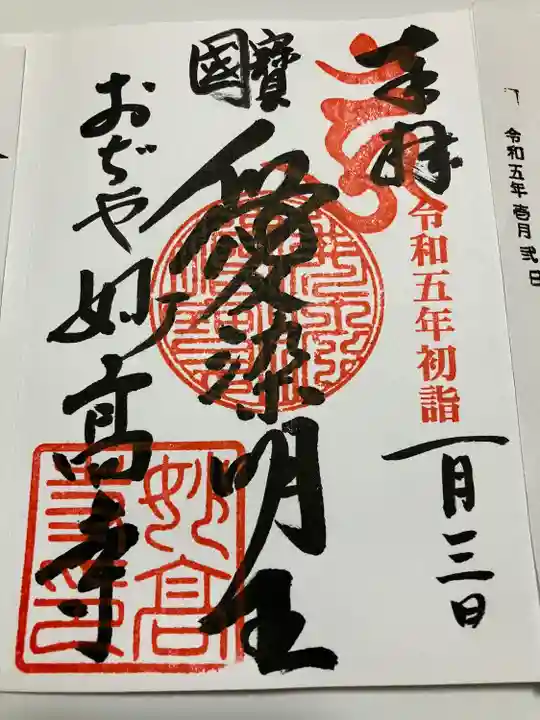 令和五年壱月弐日
奉拝
令和五年初詣
一月三日
國寶
愛染明王
おぢや妙高寺
妙高